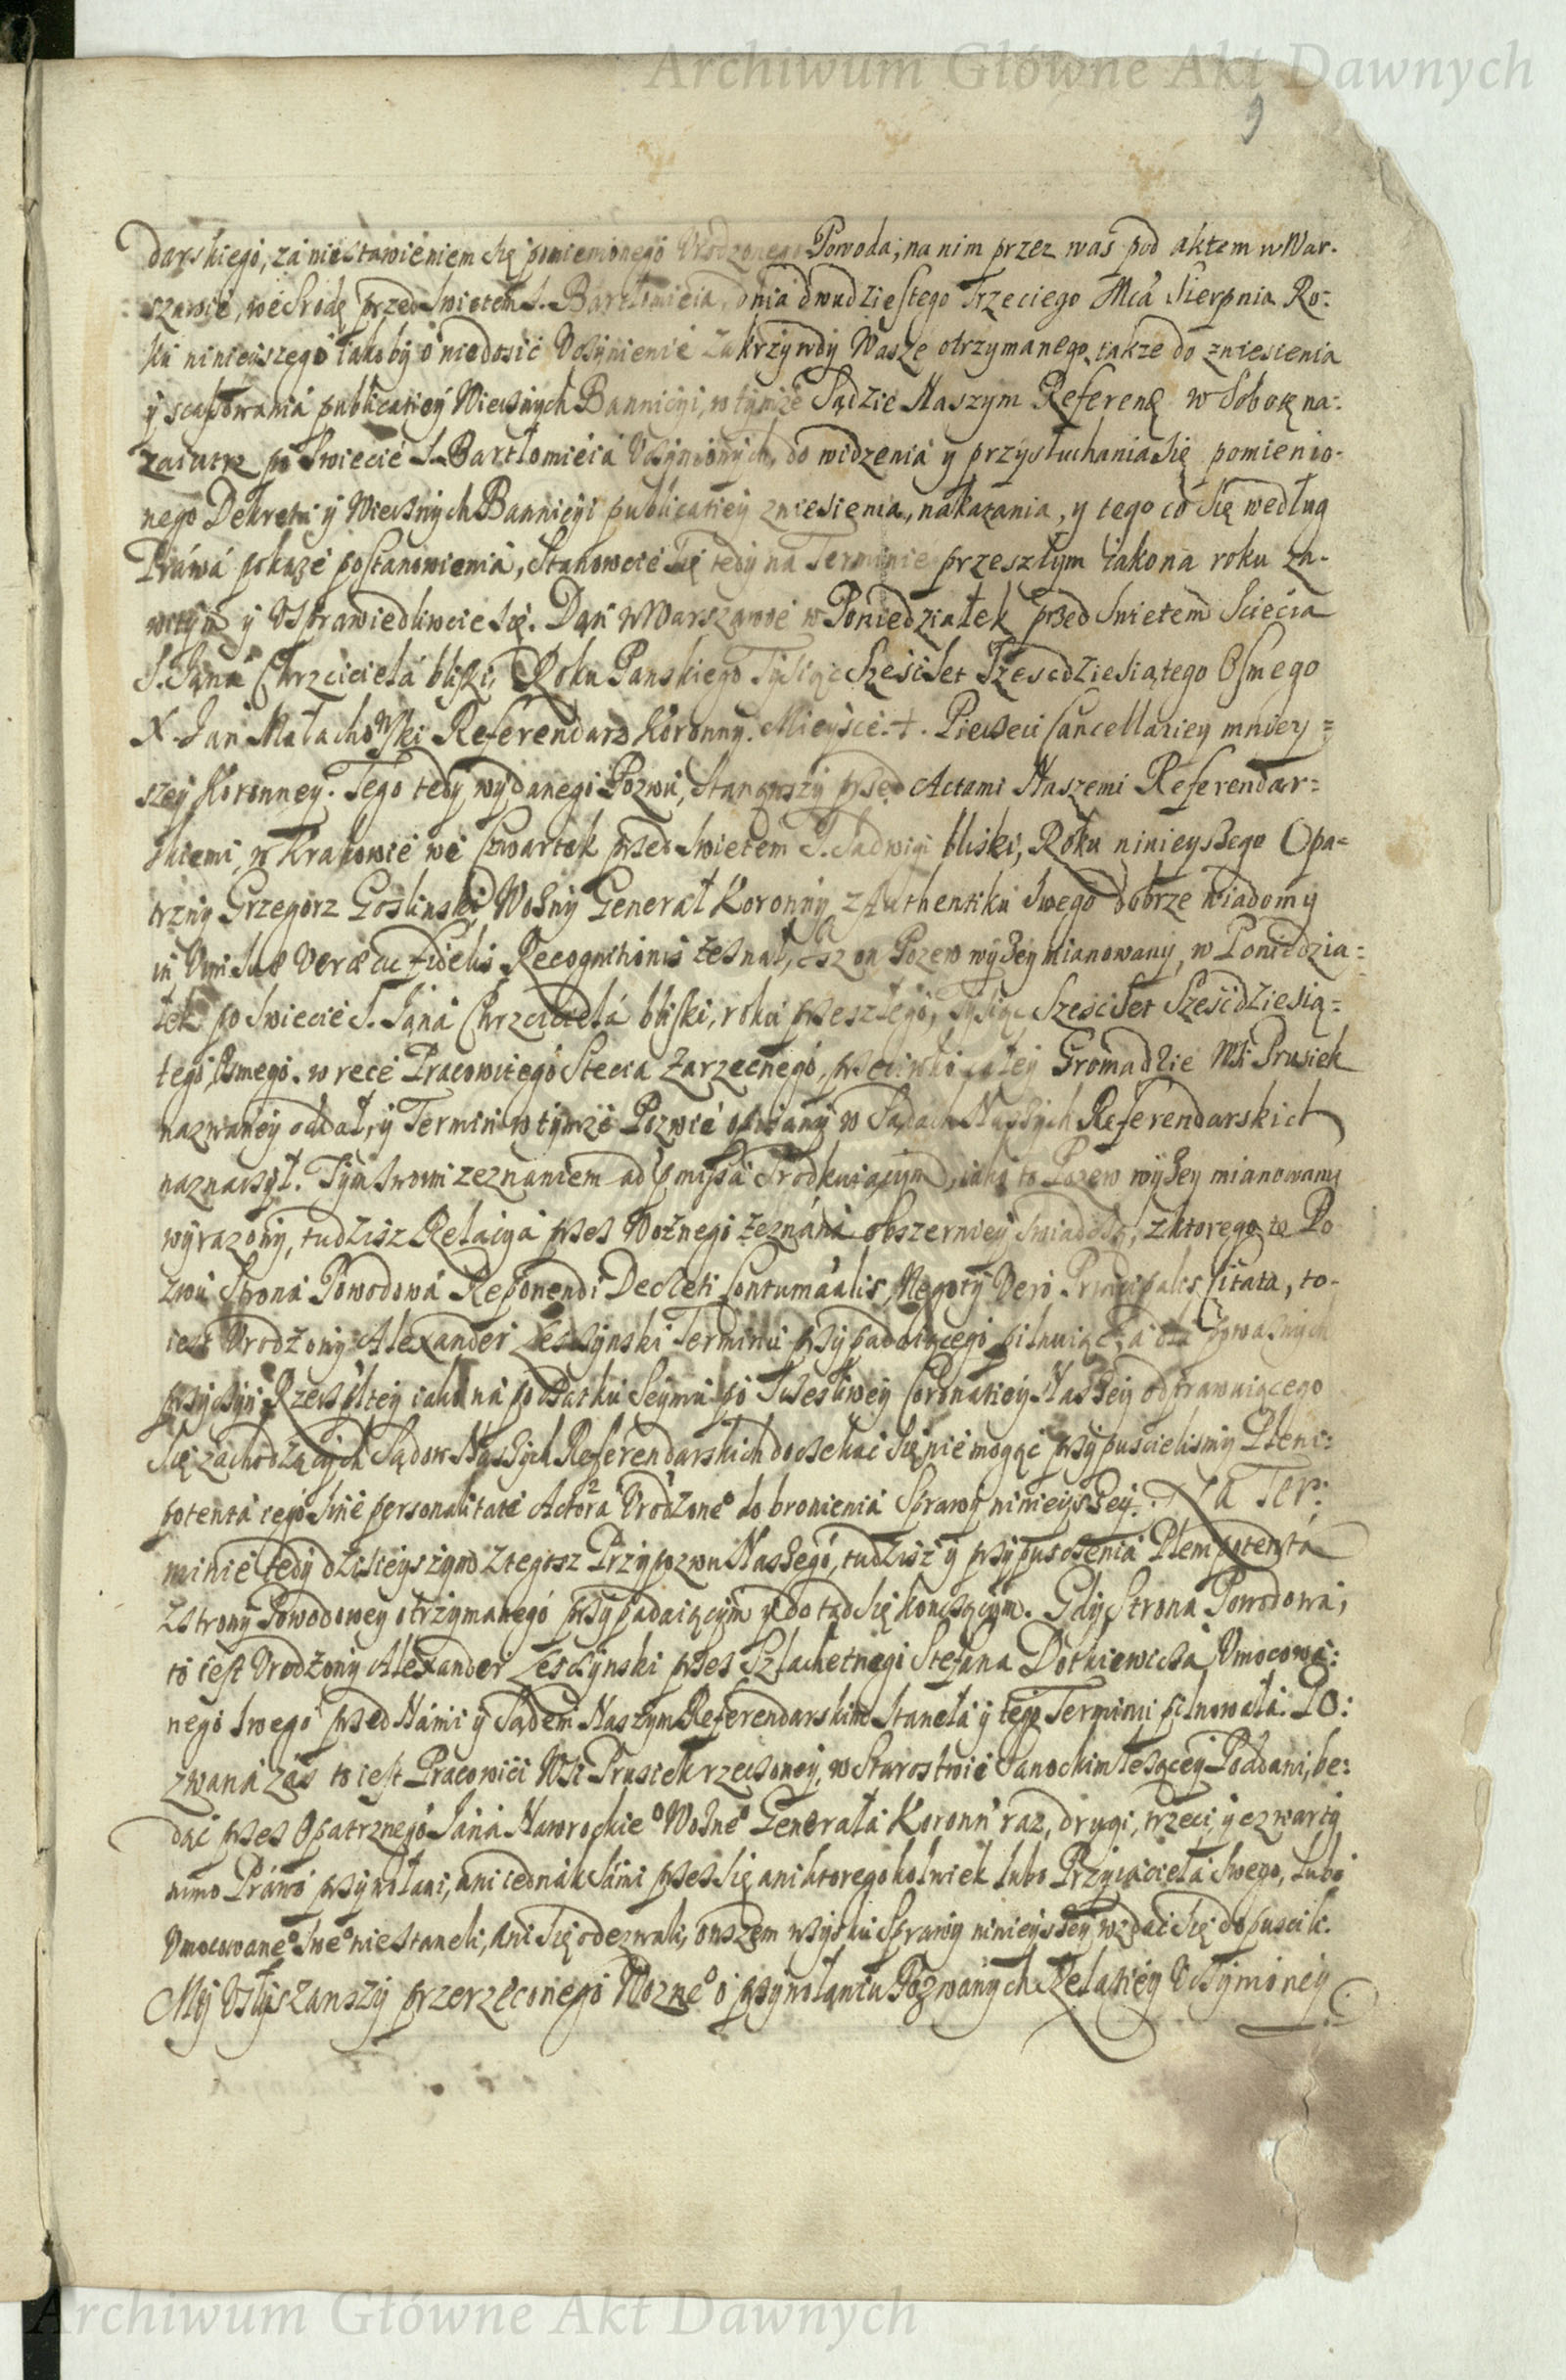 Archiwum Główne Akt Dawnych
9
darskiego, zá niestawieniem się pomienionego Urodzonego Powoda, na nim przez was pod aktem w War-
szawie, we Srodę przed Swiętem S. Bartłomieia, dnia dwudziestego Trzeciego Mcá Sierpnia Ro-
ku ninieiszego iakoby o niedosić Uczynienie za krzywdy Wasze otrzymanego, także do zniesienia
y scassowania publicatiey Wiecznych Bannicyi, w tymże Sądzie Naszym Referen: w Sobotę na-
zaiutrz po Swięcie S. Bartłomieia Uczynionych, do widzenia y przysłuchania się pomienio-
nego Dekretu y Wiecznych Bannicyi publicatiey zniesienia, nakazania, y tego co się według
Práwá pokaże postanowienia, Stanowcie się tedy na Terminie przeszłym iako na roku za-
witym y Usprawiedliwcie się. Dan w Warszawie w Poniedziałek przed Swiętem Scięcia
S. Janá Chrzcicielá bliski, Roku Panskiego Tysiąc Sześćset Szescdziesiątego Osmego
X. Jan Małachowski Referendarz Koronny. Mieysce. +. Pieczęci Cancellariey mniey=
szey Koronney. Tego tedy wydanego Pozwu, Stanąwszy przed Actami Naszemi Referendar=
skiemi, w Krakowie we Czwartek przed Swiętem S. Jadwigi bliski, Roku ninieyszego Opa=
trzny Grzegorz Goslinski Woźny Generał Koronny z Authentiku swego dobrze wiadomy
in vim suæ veræ ac fidelis Recognitionis zeznał, isz on Pozew wyżey mianowany, w Poniedzia=
łek po Swięcie S. Janá Chrzcicielá bliski, roku przeszłego, Tysiąc Sześćset Sześćdziesią=
tego Osmego. w ręce Pracowitego Stecia Zarzecnego, przeciwko całey Gromadzie Wsi Prusiek
nazwáney oddał, y Termin w tymże Pozwie opisany w Sądach Naszych Referendarskich
naznaczył. Tym swoim zeznaniem ad præmissa Srodkuiącym, iako to Pozew wyżey mianowany
wyrażony, tudzisz Relacya przez Woźnego zeznána obszerniey swiadczy, z ktorego to Po-
zwu Strona Powodowá Reponendi Decreti Contumacialis Negotÿ vero Principalis Citata, to-
iest Urodzony Alexander Leszczynski Terminu przypadaiącego pilnuiąc, á dla poważnych
przyczyn Rzeczpltey iako na początku Seymu po Szczęśliwey Coronatiey Naszey odprawuiącego
się zachodzących Sądow Naszych Referendarskich doczekać się nie mogąc przypuscielismy Pleni=
potenta iego sine personalitate Actora Urodzone° do bronienia Sprawy ninieyszey. Na Ter:
minie tedy dzisieyszym z tegosz Przypozwu Naszego, tudzisz y przypuszczenia Plenipotentá
z strony Powodowey otrzymanego przypadaiącym y do tąd się kończącym. Gdy Strona Powodowa,
to iest Urodzony Alexander Leszczynski przez Szlachetnego Stefana Dotkiewicza Umocowa:
nego swego przed Námi y Sądem Naszym Referendarskim Stanęła y tego Terminu pilnowała. Po:
zwana záś to iest Pracowici Wsi Prusiek rzeczoney, w Starostwie Sanockim leżącey Poddani, bę:
dąc przez Opatrznego Jáná Naworockie° Woźne° Generała Koronn° raz, drugi, trzeci, y czwarty
mimo Práwo przywołani, ani iednák sámi przez się ani ktoregokolwiek lubo Przyiacielá swego, lubo
Umocowane° swe° nie stanęli, Ani się odezwali, owszem w zysku Sprawy ninieyszey wzdać się dopuscili.
My Usłyszawszy przerzeczonego Wozne° o przywołaniu Pozwanych Relatiey Uczynioney
Archiwum Główne Akt Dawnych